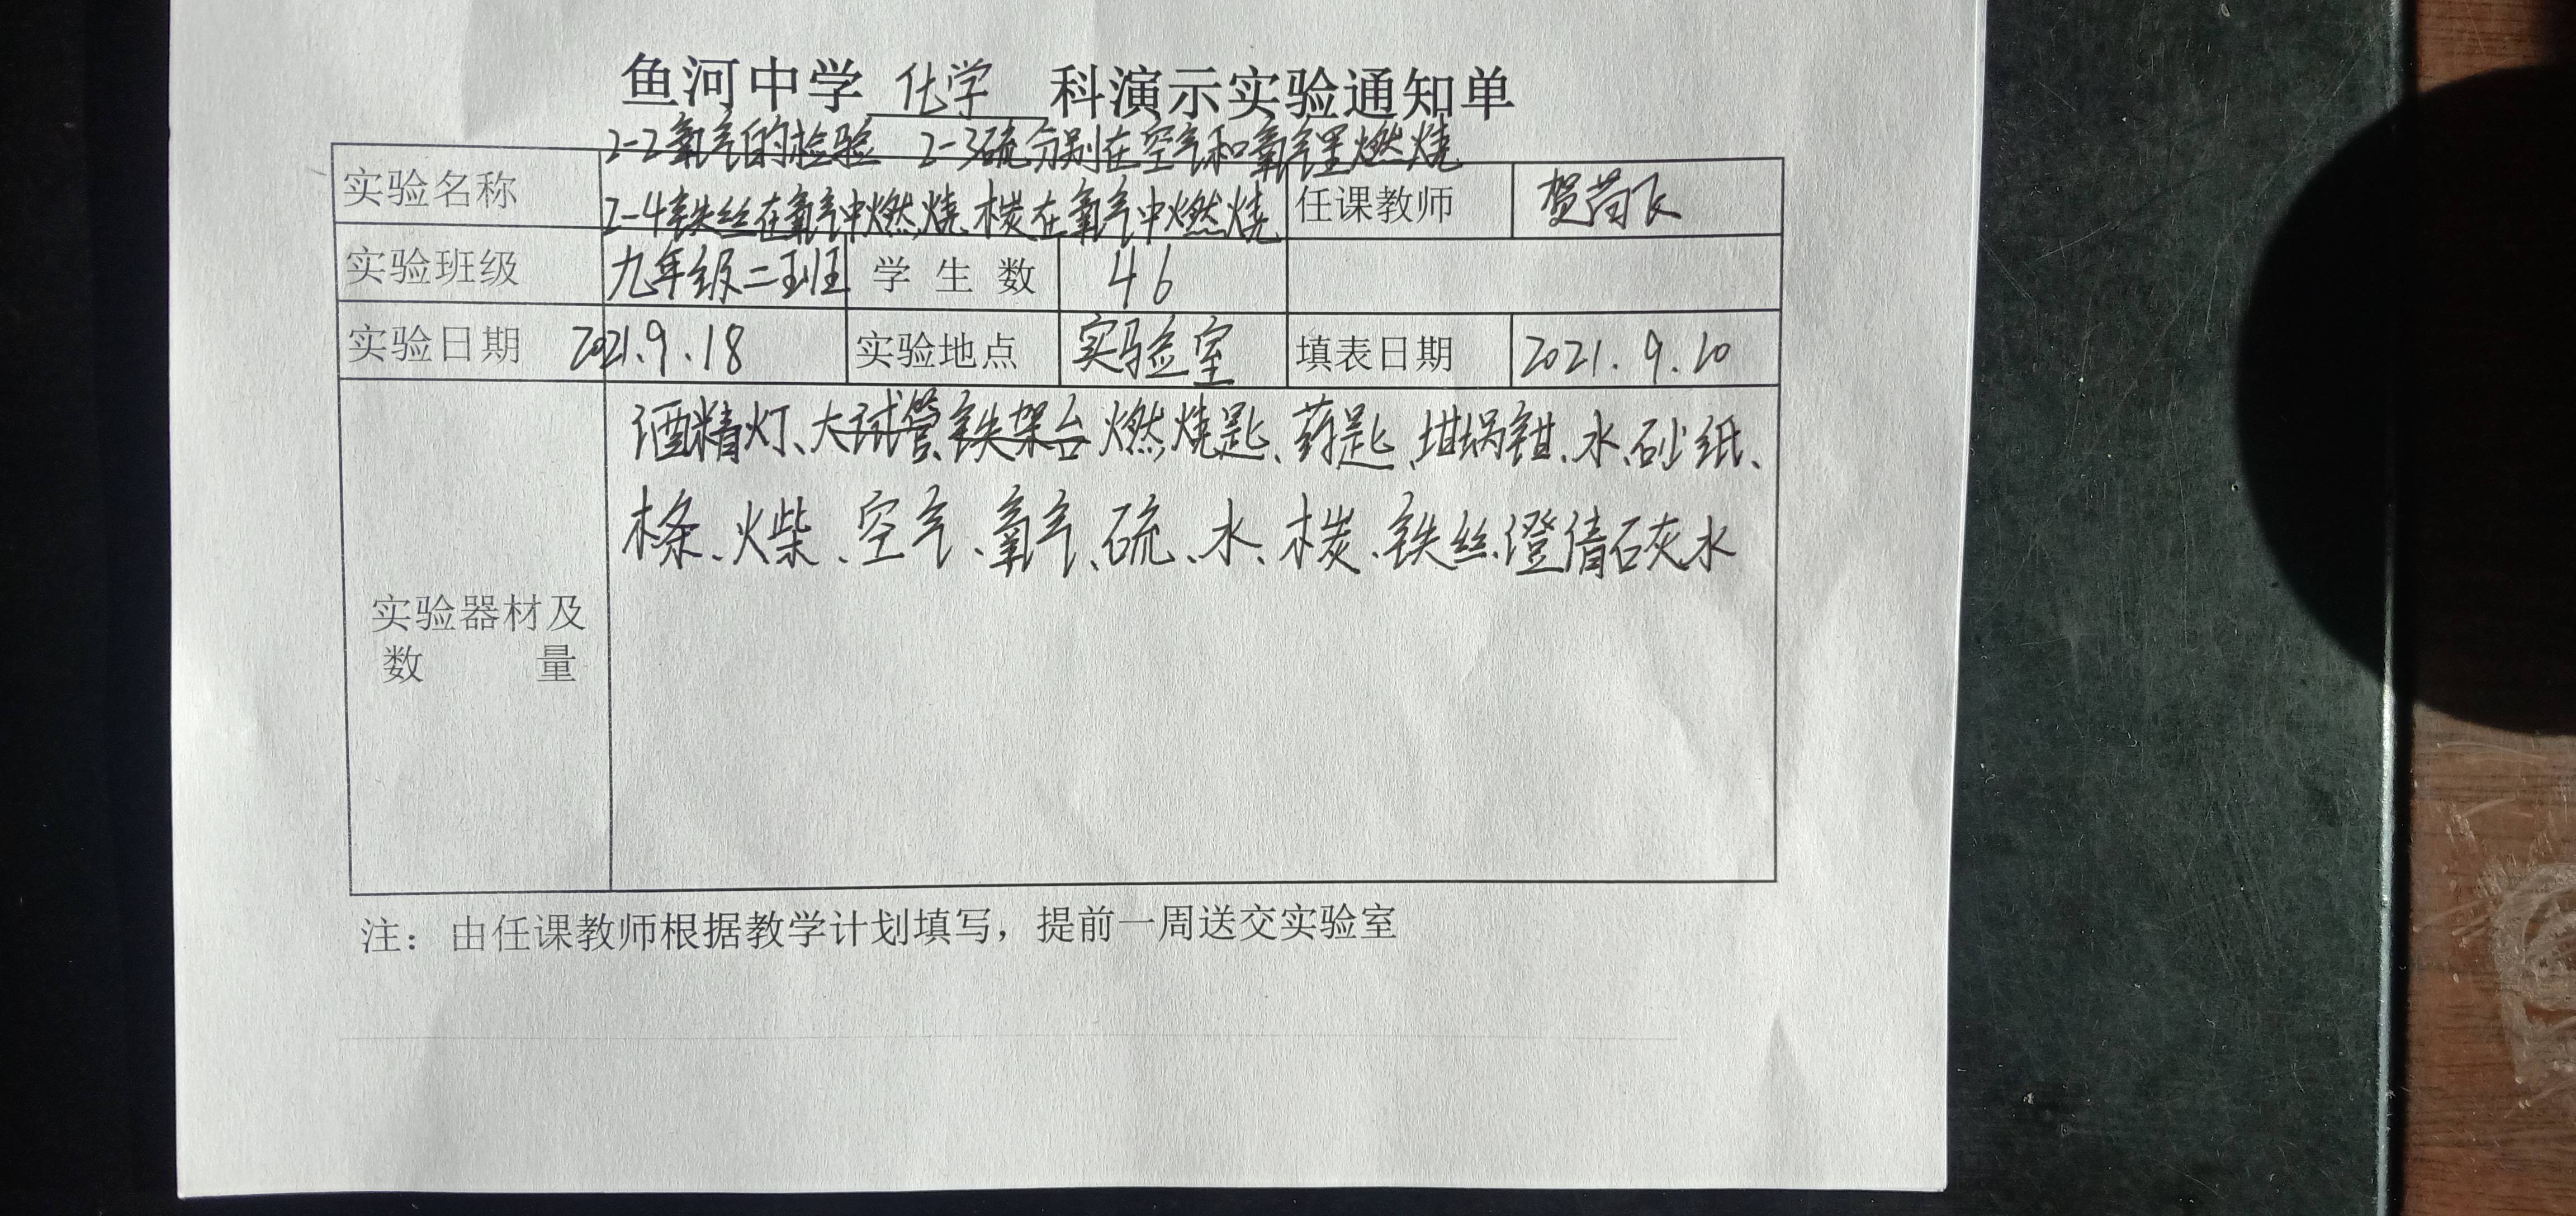 鱼河中学 化学 科演示实验通知单
2-2氧气的检验 2-3硫分别在空气和氧气里燃烧
实验名称 2-4铁丝在氧气中燃烧、木炭在氧气中燃烧 任课教师 贺
实验班级 九年级二班 学生数 46
实验日期 2021.9.18 实验地点 实验室 填表日期 2021.9.10
酒精灯、大试管、铁架台 燃烧匙、药匙、坩埚钳、水、砂纸、
木条、火柴、空气、氧气、硫、水、木炭、铁丝、澄清石灰水
实验器材及
数 量
注： 由任课教师根据教学计划填写，提前一周送交实验室